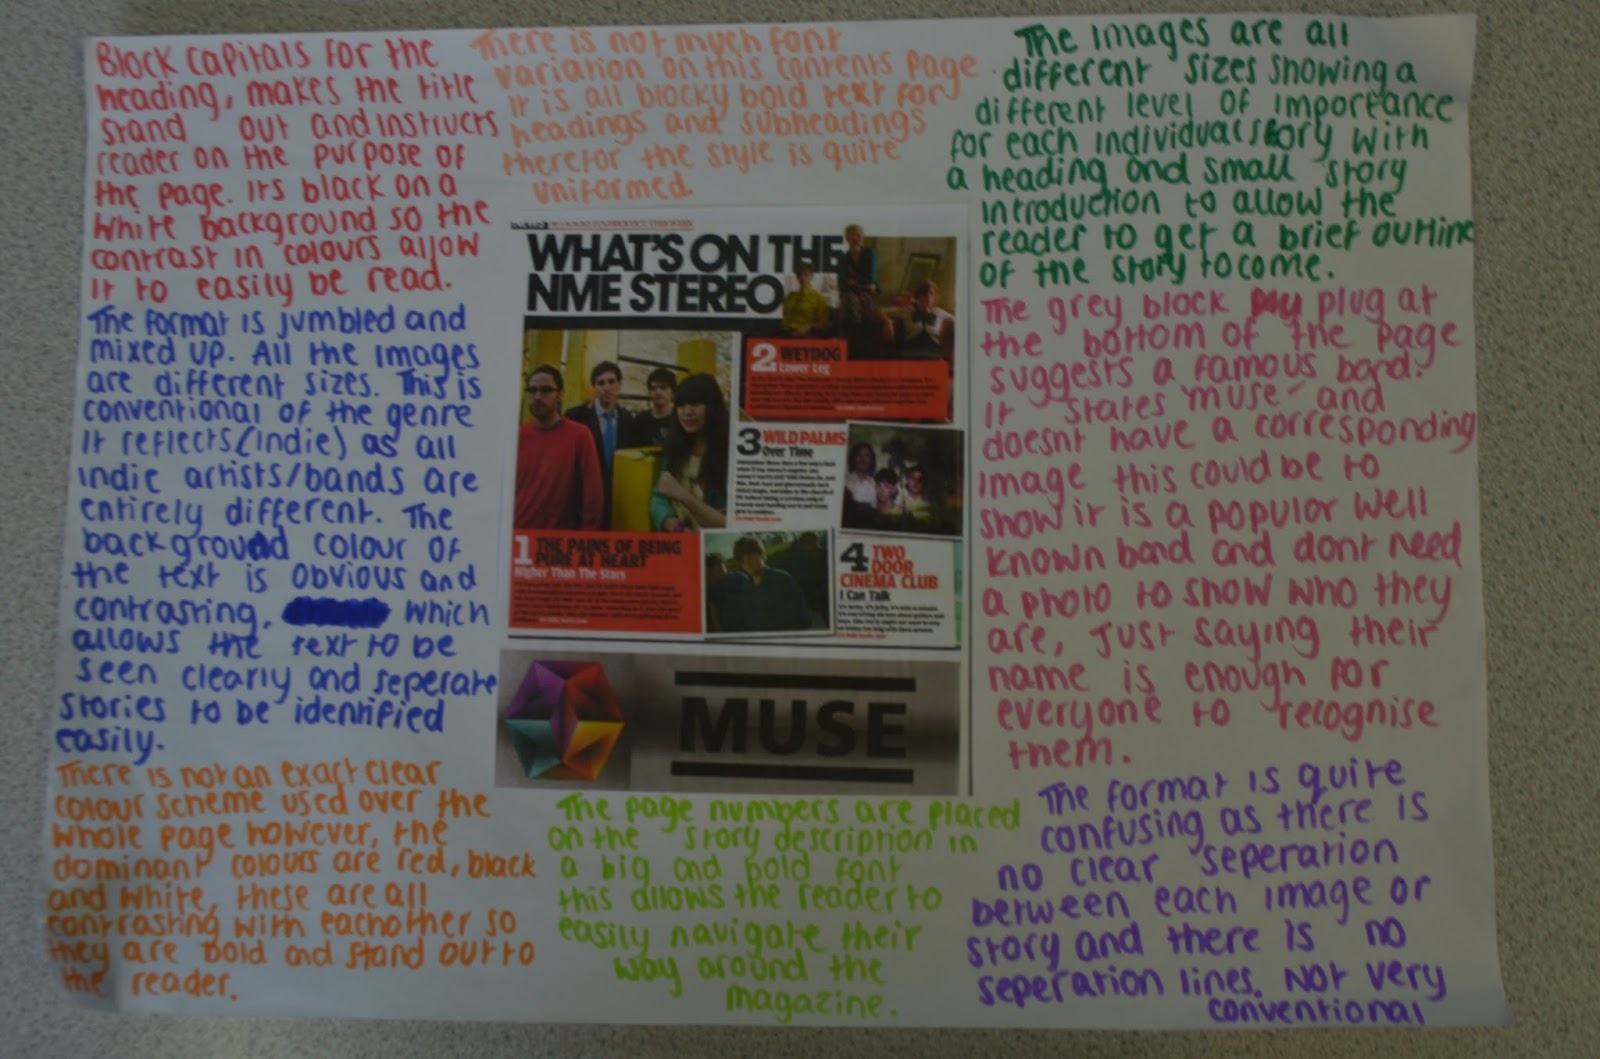 Block capitals for the
heading, makes the title
stand out and instructs
reader on the purpose of
the page. Its black on a
white background so the
contrast in colours allow
it to easily be read.
There is not much font
variation on this contents page
It is all blocky bold text for
headings and subheadings
therefor the style is quite
uniformed.
The images are all
different sizes showing a
different level of importance
for each individual story with
a heading and small story
introduction to allow the
reader to get a brief outline
of the story to come.
The format is jumbled and
mixed up. All the images
are different sizes. This is
conventional of the genre
it reflects (indie) as all
indie artists/bands are
entirely different. The
background colour of
the text is obvious and
contrasting, which
allows the text to be
seen clearly and seperate
stories to be identified
easily.
WHAT'S ON THE
NME STEREO
2 WETDOG
Lower Leg
3 WILD PALMS
Over Time
1 THE PAINS OF BEING
PURE AT HEART
Higher Than The Stars
4 TWO
DOOR
CINEMA CLUB
I Can Talk
MUSE
The grey block plug at
the bottom of the page
suggests a famous band.
It states "muse" and
doesnt have a corresponding
image this could be to
show it is a popular well
known band and dont need
a photo to show who they
are, just saying their
name is enough for
everyone to recognise
them.
There is not an exact clear
colour scheme used over the
whole page however, the
dominant colours are red, black
and white, these are all
contrasting with eachother so
they are bold and stand out to
the reader.
The page numbers are placed
on the story description in
a big and bold font
this allows the reader to
easily navigate their
way around the
magazine.
The format is quite
confusing as there is
no clear seperation
between each image or
story and there is no
seperation lines. Not very
conventional